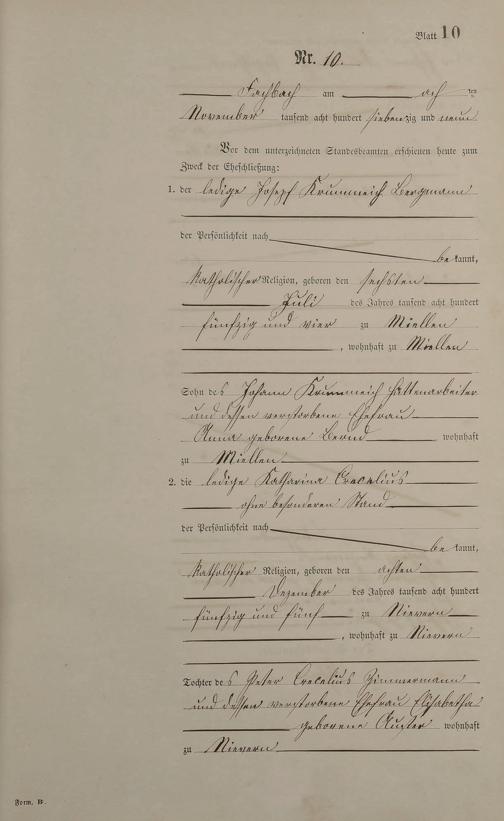 Blatt 10
Nr. 10.
Fachbach am acht ten
November tausend acht hundert siebenzig und neun
Vor dem unterzeichneten Standesbeamten erschienen heute zum
Zweck der Eheschließung:
1. der ledige Joseph Krummeich Bergmann
der Persönlichkeit nach
be kannt,
katholischer Religion, geboren den sechsten
Juli des Jahres tausend acht hundert
fünfzig und vier zu Miellen
, wohnhaft zu Miellen
Sohn des Johann Krummeich Hüttenarbeiter
und dessen verstorbene Ehefrau
Anna geborene Bernd wohnhaft
zu Miellen
2. die ledige Katharina Crecelius
ohne besonderen Stand
der Persönlichkeit nach
be kannt,
katholischer Religion, geboren den achten
Dezember des Jahres tausend acht hundert
fünfzig und fünf zu Nievern
, wohnhaft zu Nievern
Tochter des Peter Crecelius Zimmermann
und dessen verstorbene Ehefrau Elisabetha
geborene wohnhaft
zu Nievern
Form. B.